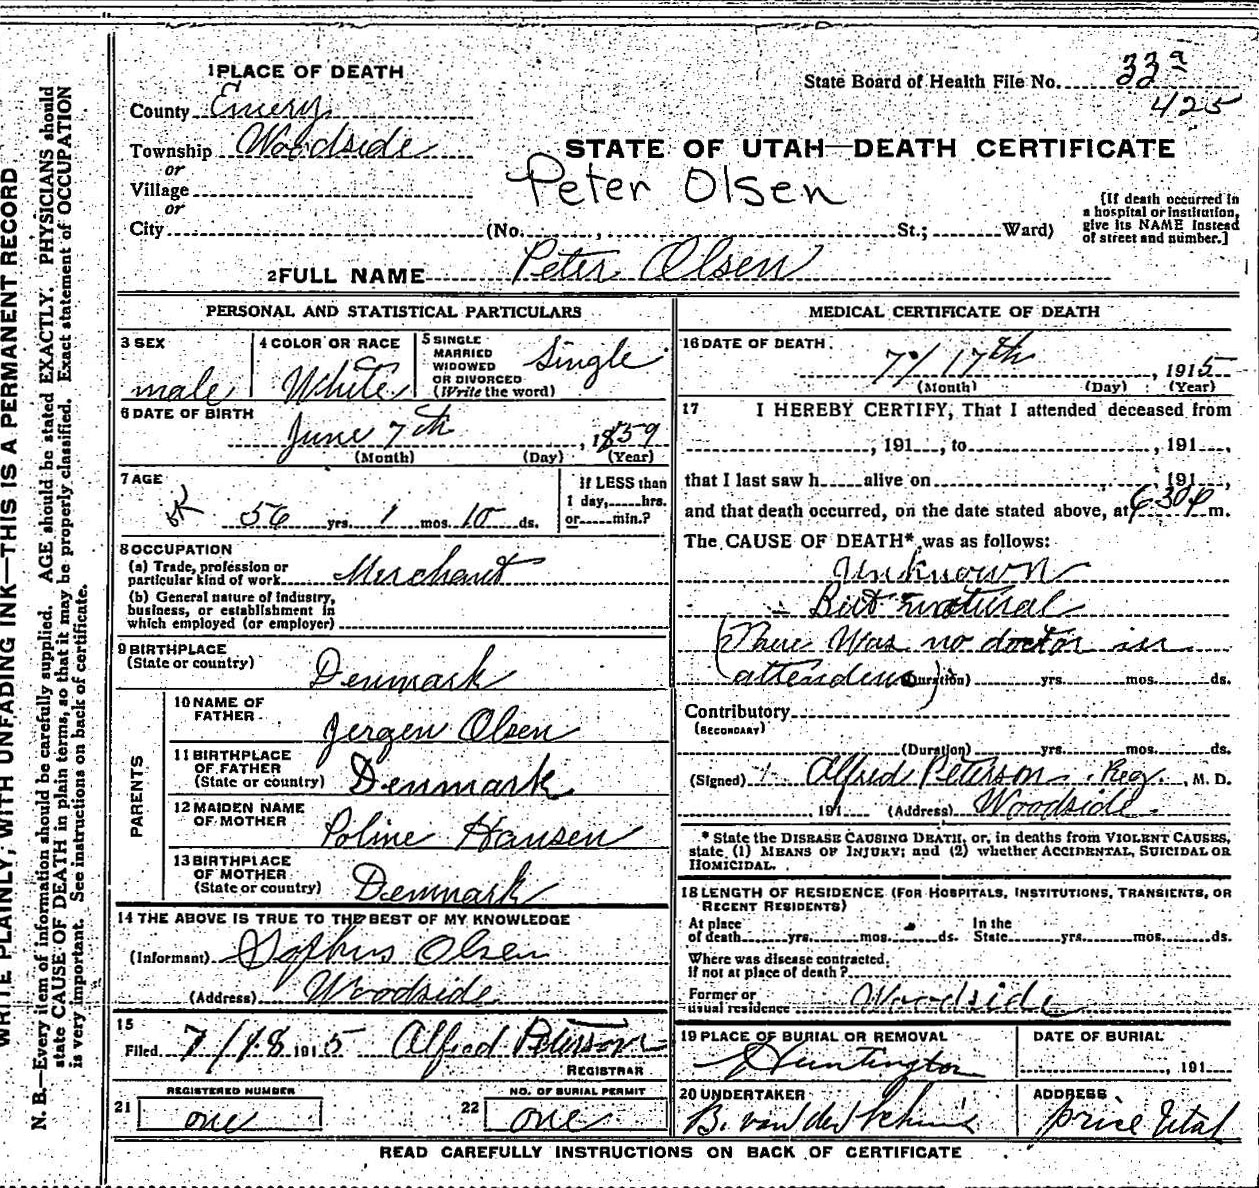 WRITE PLAINLY, WITH UNFADING INK—THIS IS A PERMANENT RECORD
N. B.—Every item of information should be carefully supplied. AGE should be stated EXACTLY. PHYSICIANS should
state CAUSE OF DEATH in plain terms, so that it may be properly classified. Exact statement of OCCUPATION
is very important. See instructions on back of certificate.
1 PLACE OF DEATH
County Emery
Township Woodside
or
Village
or
City (No. , St.; Ward)
State Board of Health File No. 33a
425
STATE OF UTAH—DEATH CERTIFICATE
Peter Olsen
[If death occurred in
a hospital or institution,
give its NAME instead
of street and number.]
2 FULL NAME Peter Olsen
PERSONAL AND STATISTICAL PARTICULARS
3 SEX
male
4 COLOR OR RACE
White
5 SINGLE
MARRIED
WIDOWED
OR DIVORCED
(Write the word)
Single
6 DATE OF BIRTH
June 7th, 1859
(Month) (Day) (Year)
7 AGE
OK 56 yrs. 1 mos. 10 ds.
If LESS than
1 day, hrs.
or min.?
8 OCCUPATION
(a) Trade, profession or
particular kind of work Merchant
(b) General nature of industry,
business, or establishment in
which employed (or employer)
9 BIRTHPLACE
(State or country)
Denmark
PARENTS
10 NAME OF
FATHER
Jergen Olsen
11 BIRTHPLACE
OF FATHER
(State or country)
Denmark
12 MAIDEN NAME
OF MOTHER
Poline Hansen
13 BIRTHPLACE
OF MOTHER
(State or country)
Denmark
14 THE ABOVE IS TRUE TO THE BEST OF MY KNOWLEDGE
(Informant) Sophus Olsen
(Address) Woodside
15
Filed 7/18 1915 Alfred Peterson
REGISTRAR
REGISTERED NUMBER
21 one
NO. OF BURIAL PERMIT
22 one
MEDICAL CERTIFICATE OF DEATH
16 DATE OF DEATH
7/ 17th, 1915
(Month) (Day) (Year)
17 I HEREBY CERTIFY, That I attended deceased from
, 191 , to , 191 ,
that I last saw h alive on , 191 ,
and that death occurred, on the date stated above, at 6 30 p m.
The CAUSE OF DEATH* was as follows:
Unknown
But natural
(There Was no doctor in
attendens) (Duration) yrs. mos. ds.
Contributory
(SECONDARY)
(Duration) yrs. mos. ds.
(Signed) Alfred Peterson Reg, M. D.
, 191 (Address) Woodside
* State the DISEASE CAUSING DEATH, or, in deaths from VIOLENT CAUSES,
state (1) MEANS OF INJURY; and (2) whether ACCIDENTAL, SUICIDAL OR
HOMICIDAL.
18 LENGTH OF RESIDENCE (FOR HOSPITALS, INSTITUTIONS, TRANSIENTS, OR
RECENT RESIDENTS)
At place
of death yrs. mos. ds.
In the
State yrs. mos. ds.
Where was disease contracted,
if not at place of death?
Former or
usual residence Woodside
19 PLACE OF BURIAL OR REMOVAL
Huntington
DATE OF BURIAL
, 191
20 UNDERTAKER
B. van der
ADDRESS
price Utal
READ CAREFULLY INSTRUCTIONS ON BACK OF CERTIFICATE